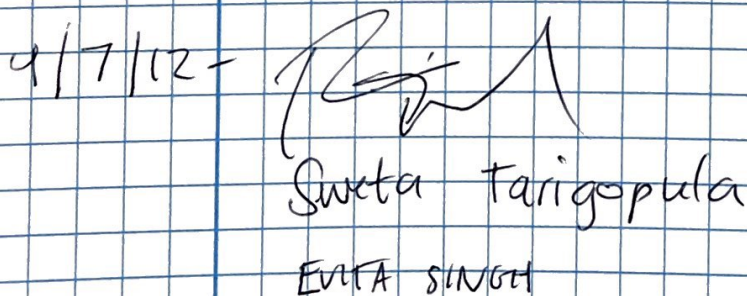 9/7/12-
Sweta Tarigopula
EVITA SINGH